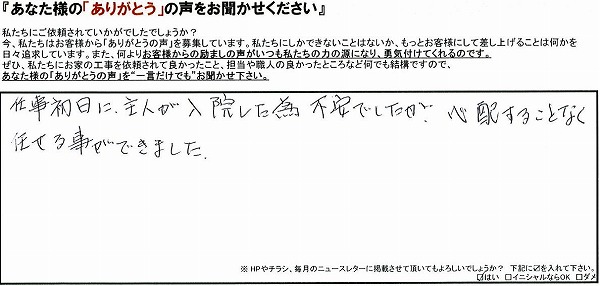 『あなた様の「ありがとう」の声をお聞かせください』
私たちにご依頼されていかがでしたでしょうか?
今、私たちはお客様から「ありがとうの声」を募集しています。私たちにしかできないことはないか、もっとお客様にして差し上げることは何かを
日々追求しています。また、何よりお客様からの励ましの声がいつも私たちの力の源になり、勇気付けてくれるのです。
ぜひ、私たちにお家の工事を依頼されて良かったこと、担当や職人の良かったところなど何でも結構ですので、
あなた様の「ありがとうの声」を“一言だけでも”お聞かせ下さい。
仕事初日に、主人が入院した為不安でしたが、心配することなく
任せる事ができました。
※HPやチラシ、毎月のニュースレターに掲載させて頂いてもよろしいでしょうか? 下記に☑を入れて下さい。
☑はい □イニシャルならOK □ダメ